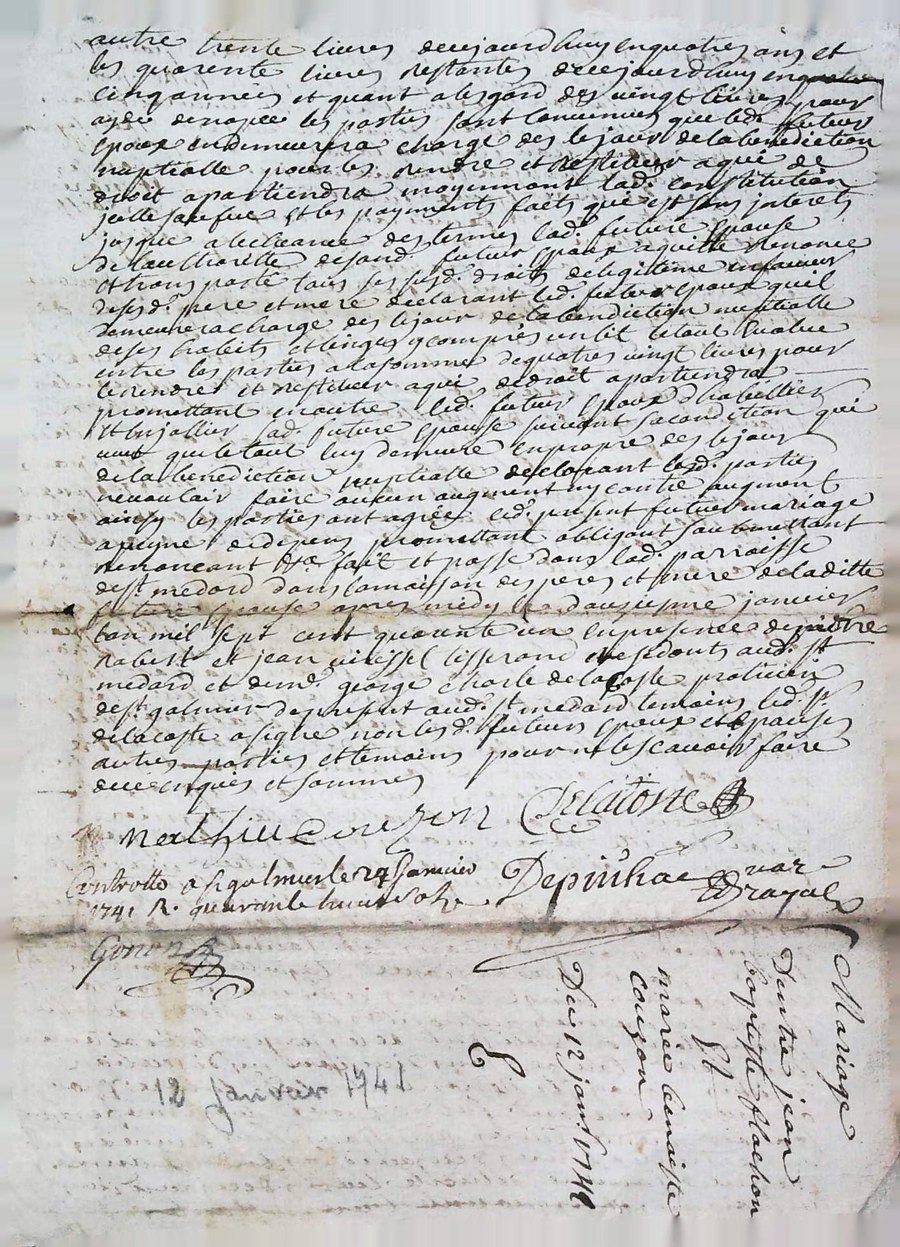 autre trente livres decejourdhuy enquatres ans et
les quarente livres restantes decejourdhuy en
cinq années et quant a lesgard des vingt livres pour
les parties sont convenues que led. futur
epoux endemeurera chargé des lejour delabenediction
nuptialle pour les rendre et restituer aqui de
droit apartiendra moyennant lad. constitution
et les payments faits que est sans interets
jusque a lecheance des termes lad. future epouse
de lauthorité desond. futur epoux aquitte renonce
et transporte tous ses susd. droits delegitime enfaveur
desesd. pere et mere declarant led. futur epoux quil
demeurera chargé des lejour de la benediction nuptialle
deses habits et linges ycompris un lit letout Evalué
entre les parties alasomme dequatres vingt livres pour
lerendre et restituer aqui dedroit apartiendra
promettant enoutre led. futur epoux dhabillier
et enjollier lad. future epouse suivant sacondition qui
veut queletout luy demeure enpropre des lejour
de la benediction nuptialle declarant lesd. parties
nevouloir faire aucun augment ny contre augment
ainsy les parties ont agréé led. present futur mariage
apeyne dedepens promettant obligeant soumettant
renonçant &a fait et passé dans lad. parroisse
de st. medard dans lamaison des pere et mere deladitte
future epouse apres midy le douzieme janvier
lan mil sept cent quarente un en presence de
Robert et jean tisserand residents aud. st
medard et de me. george charle delacoste praticien
de st. galmier depresent aud. st medard temoins led. sr.
delacoste a signé non lesd. futurs epoux et epouse
autres parties et temoins pour ne lescavoir faire
dece enquis et sommés
Mathieu couzon Delacoste
Controllé a st galmier le 24 Janvier
1741 R. quarante huit sols
Gonon
Mariage
Dentre jean
baptiste flachon
Et
marie benoiste
couzon
Du 12 janv. 1741
12 Janvier 1741